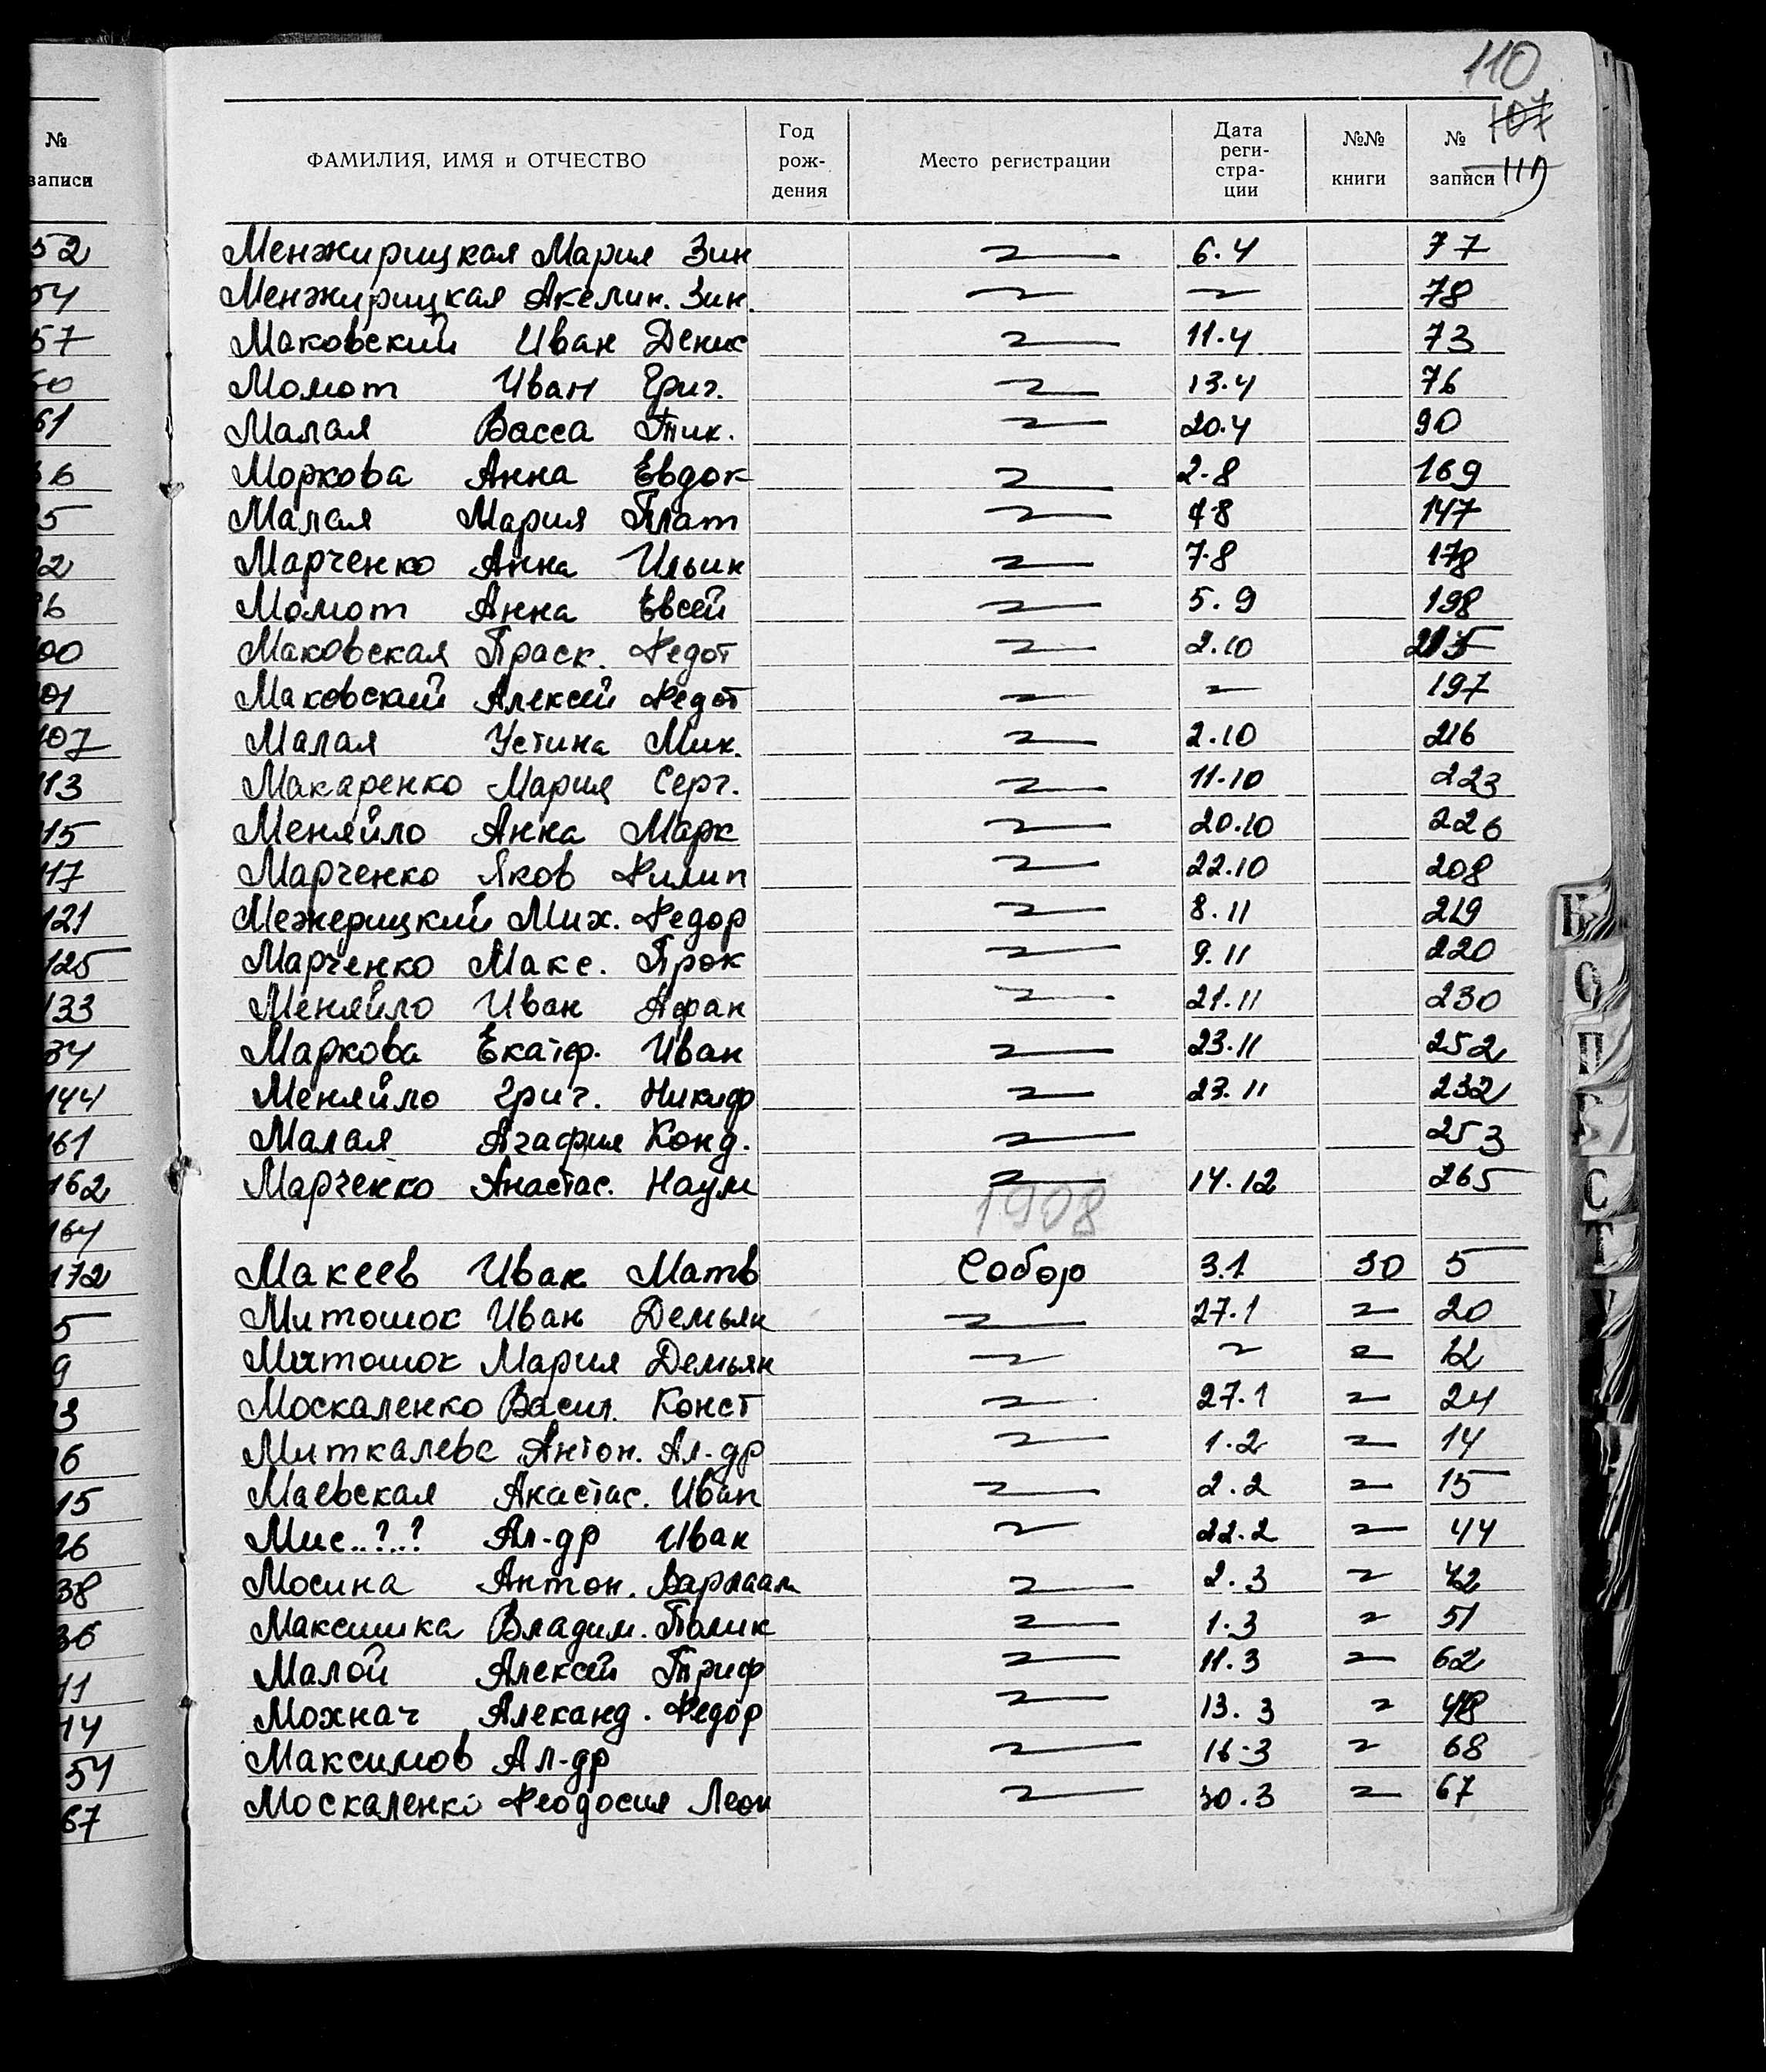 110
107
110
№ записи
ФАМИЛИЯ, ИМЯ и ОТЧЕСТВО Год рож- дения Место регистрации Дата реги- стра- ции №№ книги № записи
Менжирицкая Мария Зин 6.4 77
Менжирицкая Акелин. Зин. 78
Маковский Иван Денис 11.4 73
Момот Иван Григ. 13.4 76
Малая Васса Тик. 20.4 90
Моркова Анна Евдок 2.8 169
Малая Мария Плат 4.8 147
Марченко Анна Ильин 7.8 178
Момот Анна Евсей 5.9 198
Маковская Праск. Федот 2.10 215
Маковский Алексей Федот 197
Малая Устина Мик. 2.10 216
Макаренко Мария Серг. 11.10 223
Меняйло Анна Марк 20.10 226
Марченко Яков Филип 22.10 208
Межерицкий Мих. Федор 8.11 219
Марченко Макс. Прок 9.11 220
Меняйло Иван Афан 21.11 230
Маркова Екатер. Иван 23.11 252
Меняйло Григ. Никиф 23.11 232
Малая Агафия Конд. 253
Марченко Анастас. Наум 14.12 265
1908
Макеев Иван Матв Собор 3.1 30 5
Митошок Иван Демьян 27.1 20
Митошок Мария Демьян 12
Москаленко Васил. Конст 27.1 24
Миткалева Антон. Ал-др 1.2 14
Маевская Анастас. Иван 2.2 15
Мис..?..? Ал-др Иван 22.2 44
Мосина Антон. Варлаам 2.3 42
Максишка Владим. Полик 1.3 51
Малой Алексей Триф 11.3 62
Мохнач Александ. Федор 13.3 48
Максимов Ал-др 16.3 68
Москаленко Феодосия Леон 30.3 67
52
54
57
60
61
66
100
101
107
113
115
117
121
125
133
144
161
162
164
172
5
9
15
26
38
36
11
14
54
67
О
П
Р
С
Т
У